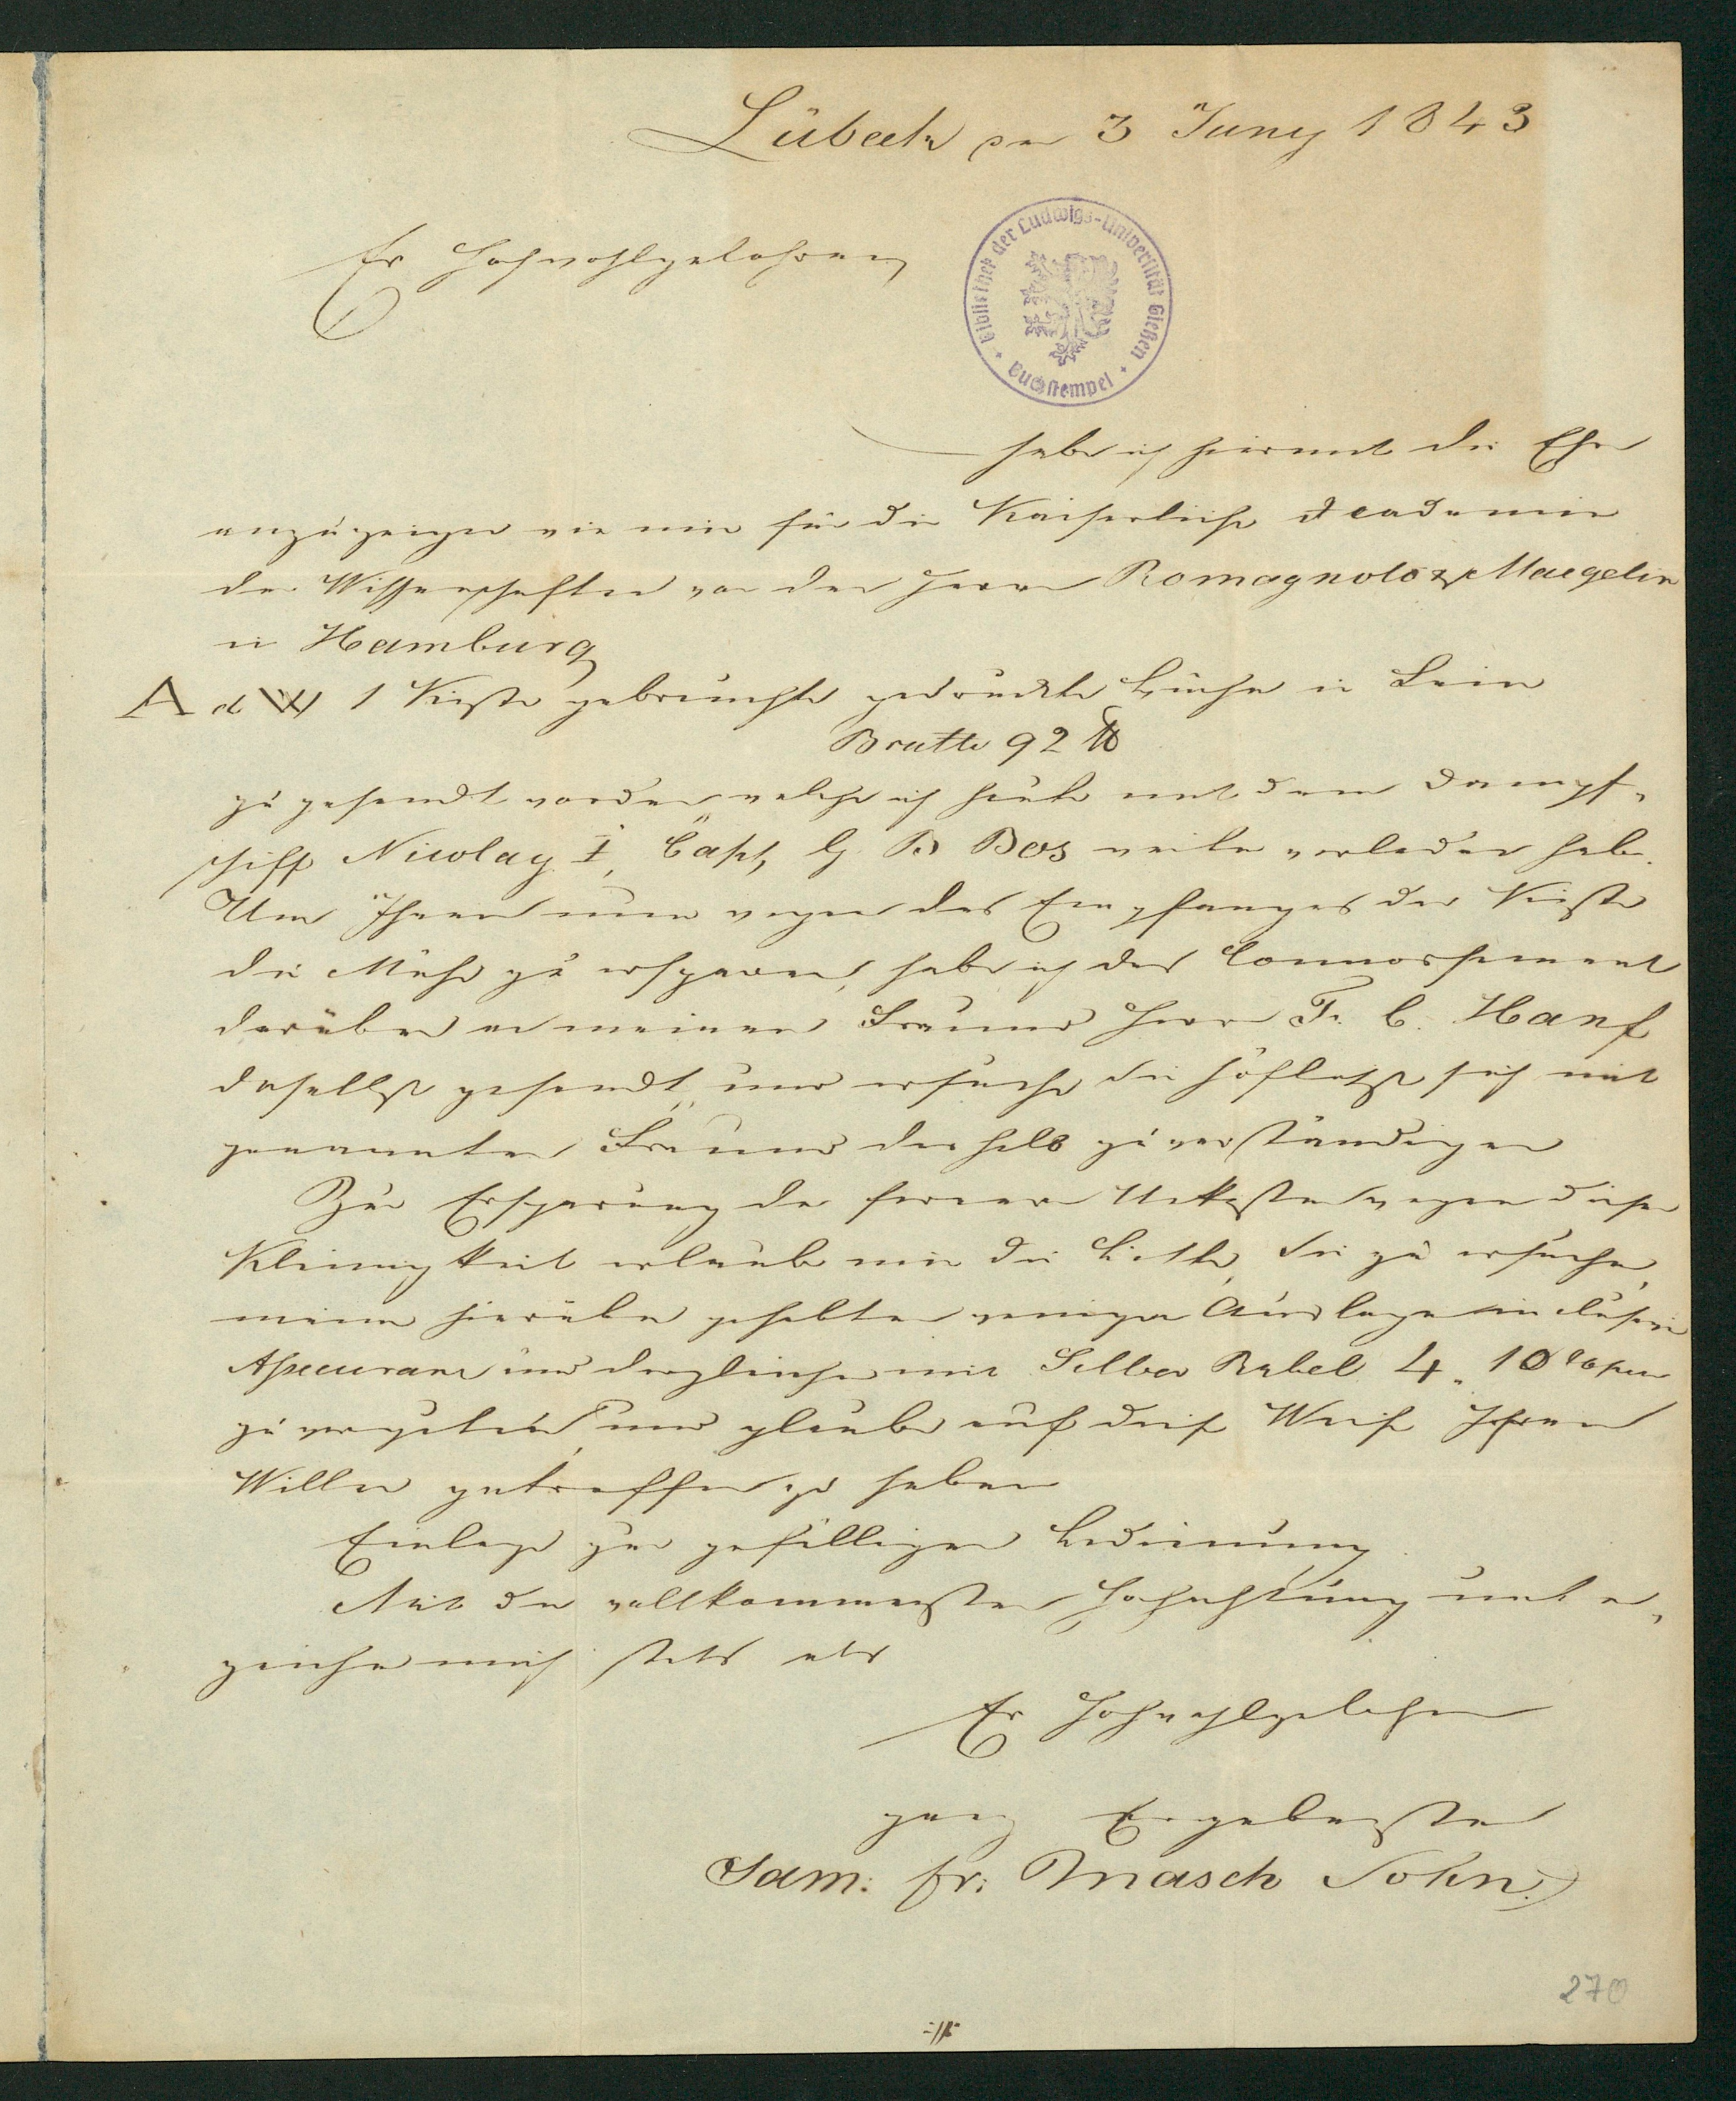 Lübeck den 3 Juny 1843
Bibliothek der Ludwigs-Universität Gießen
Buchstempel
Ew Hochwohlgeboren
habe ich hiermit die Ehre
anzuzeigen wie mir für die Kaiserliche Academie
der Wissenschaften von den Herrn Romagnolo &
in Hamburg
A d W 1 Kiste gebrauchte gedruckte Bücher in
Brutto 92 ℔
zu gesandt worden welche ich heute mit dem Dampf-
schiff Nicolay I, Capt, G. B Bos weiter verladen habe.
Um Ihnen nun wegen des Empfanges der Kiste
die Mühe zu ersparen, habe ich das Connossement
darüber an meinen Freund Herrn F. C. Hanf
daselbst gesandt, und ersuche Sie höflichst sich mit
genannten Freund deshalb zu verständigen
Zur Ersparung der ferneren Unkosten wegen dieser
Kleinigkeit erlaube mir die Bitte, Sie zu ersuchen,
meine hierüber gehabten wenigen Auslagen inclusive
Assecuranz und dergleichen mit Silber Rubel 4„ 10 Copeken
zu vergüten, und glaube auf diese Weise Ihren
Willen getroffen zu haben
Einlage zur gefälligen Bedienung
Mit der vollkommensten Hochachtung unter-
zeichne mich stets als
Ew Hochwohlgeboren
ganz Ergebenster
Sam: Fr: Masch Sohn.
270